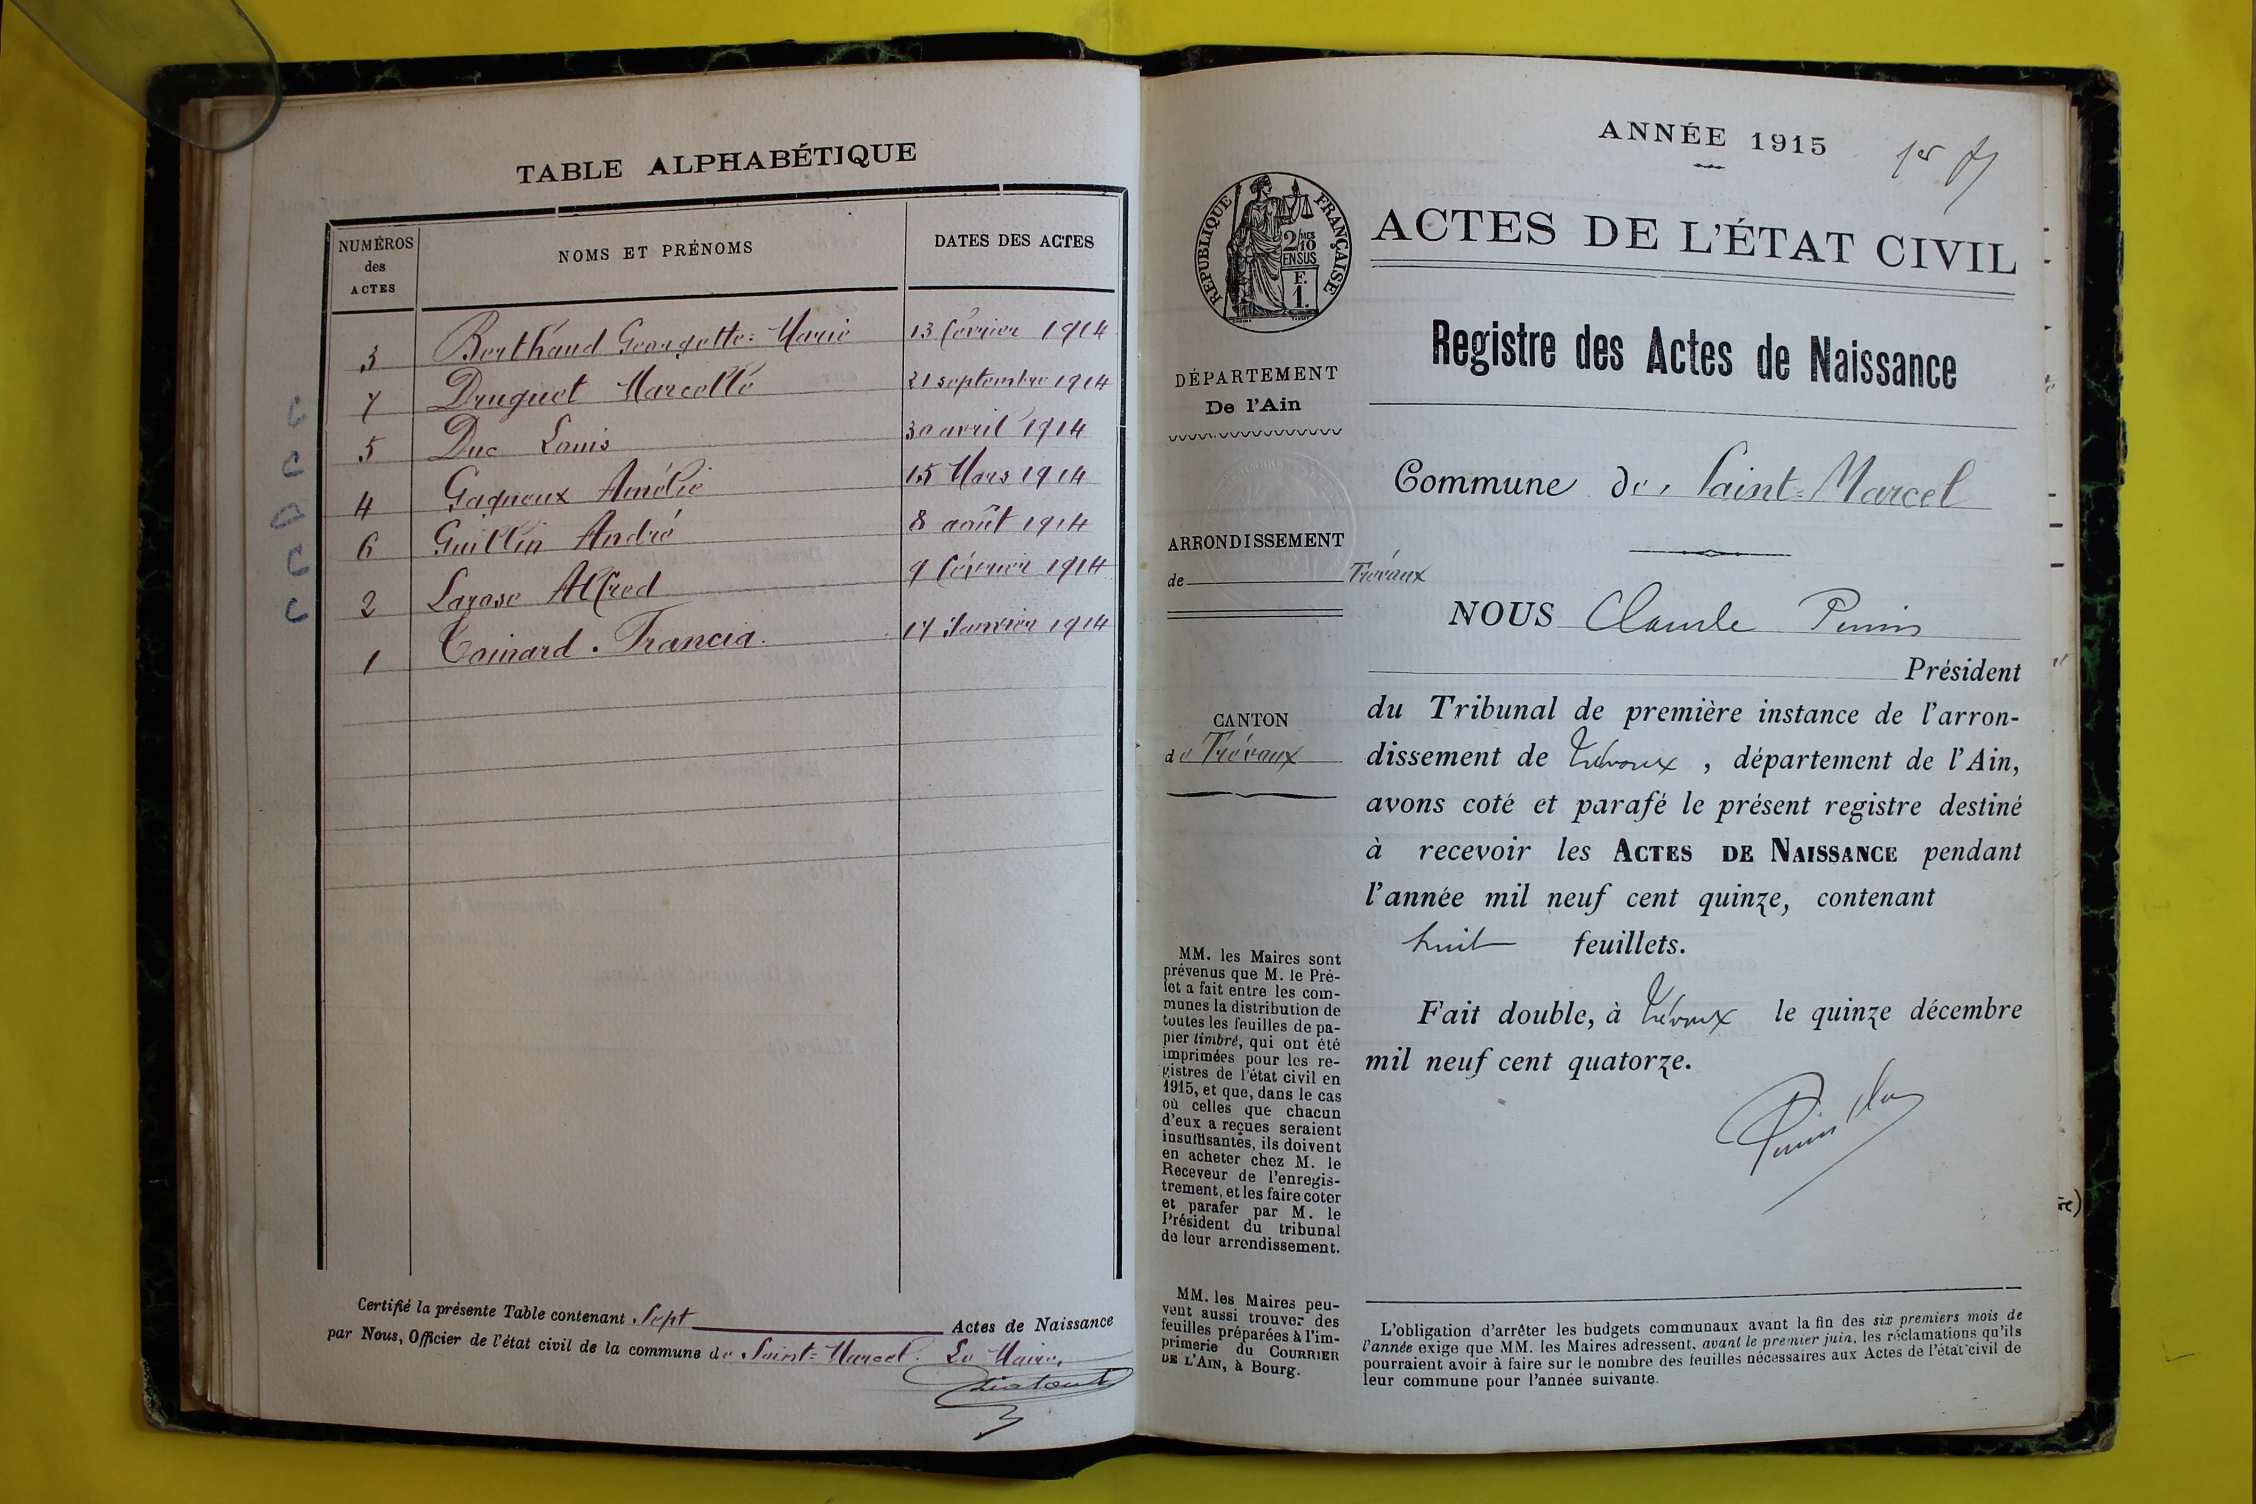 TABLE ALPHABÉTIQUE
NUMÉROS
des
ACTES
NOMS ET PRÉNOMS
DATES DES ACTES
3 Berthaud Georgette=Marie 13 février 1914
7 Druguet Marcelle 21 septembre 1914
5 Duc Louis 30 avril 1914
4 Gagneux Amélie 15 Mars 1914
6 Guillin André 8 août 1914
2 Larose Alfred 9 février 1914
1 Toinard. Francia. 17 Janvier 1914
Certifié la présente Table contenant Sept Actes de Naissance
par Nous, Officier de l'état civil de la commune de Saint=Marcel. Le Maire,
ANNÉE 1915
1er
RÉPUBLIQUE FRANÇAISE
2/10
EN SUS
F.
1.
ACTES DE L'ÉTAT CIVIL
Registre des Actes de Naissance
DÉPARTEMENT
De l'Ain
Commune de Saint=Marcel
ARRONDISSEMENT
de Trévoux
CANTON
de Trévoux
NOUS Claude
Président
du Tribunal de première instance de l'arron-
dissement de Trévoux, département de l'Ain,
avons coté et parafé le présent registre destiné
à recevoir les ACTES DE NAISSANCE pendant
l'année mil neuf cent quinze, contenant
huit feuillets.
Fait double, à Trévoux le quinze décembre
mil neuf cent quatorze.
MM. les Maires sont
prévenus que M. le Pré-
fet a fait entre les com-
munes la distribution de
toutes les feuilles de pa-
pier timbré, qui ont été
imprimées pour les re-
gistres de l'état civil en
1915, et que, dans le cas
où celles que chacun
d'eux a reçues seraient
insuffisantes, ils doivent
en acheter chez M. le
Receveur de l'enregis-
trement, et les faire coter
et parafer par M. le
Président du tribunal
de leur arrondissement.
MM. les Maires peu-
vent aussi trouver des
feuilles préparées à l'im-
primerie du COURRIER
DE L'AIN, à Bourg.
L'obligation d'arrêter les budgets communaux avant la fin des six premiers mois de
l'année exige que MM. les Maires adressent, avant le premier juin, les réclamations qu'ils
pourraient avoir à faire sur le nombre des feuilles nécessaires aux Actes de l'état civil de
leur commune pour l'année suivante.